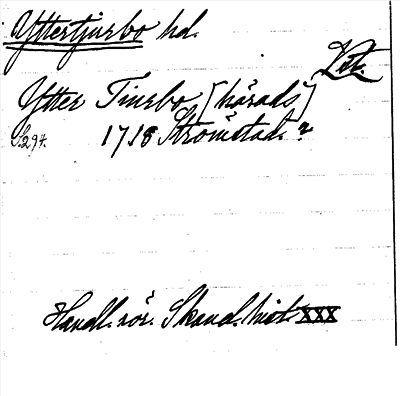 Yttertjurbo hd.
Ytter Tiurbo [härads]
S. 294. 1718 Strömstad. 2
Handl. rör. Skand. hist. XXX